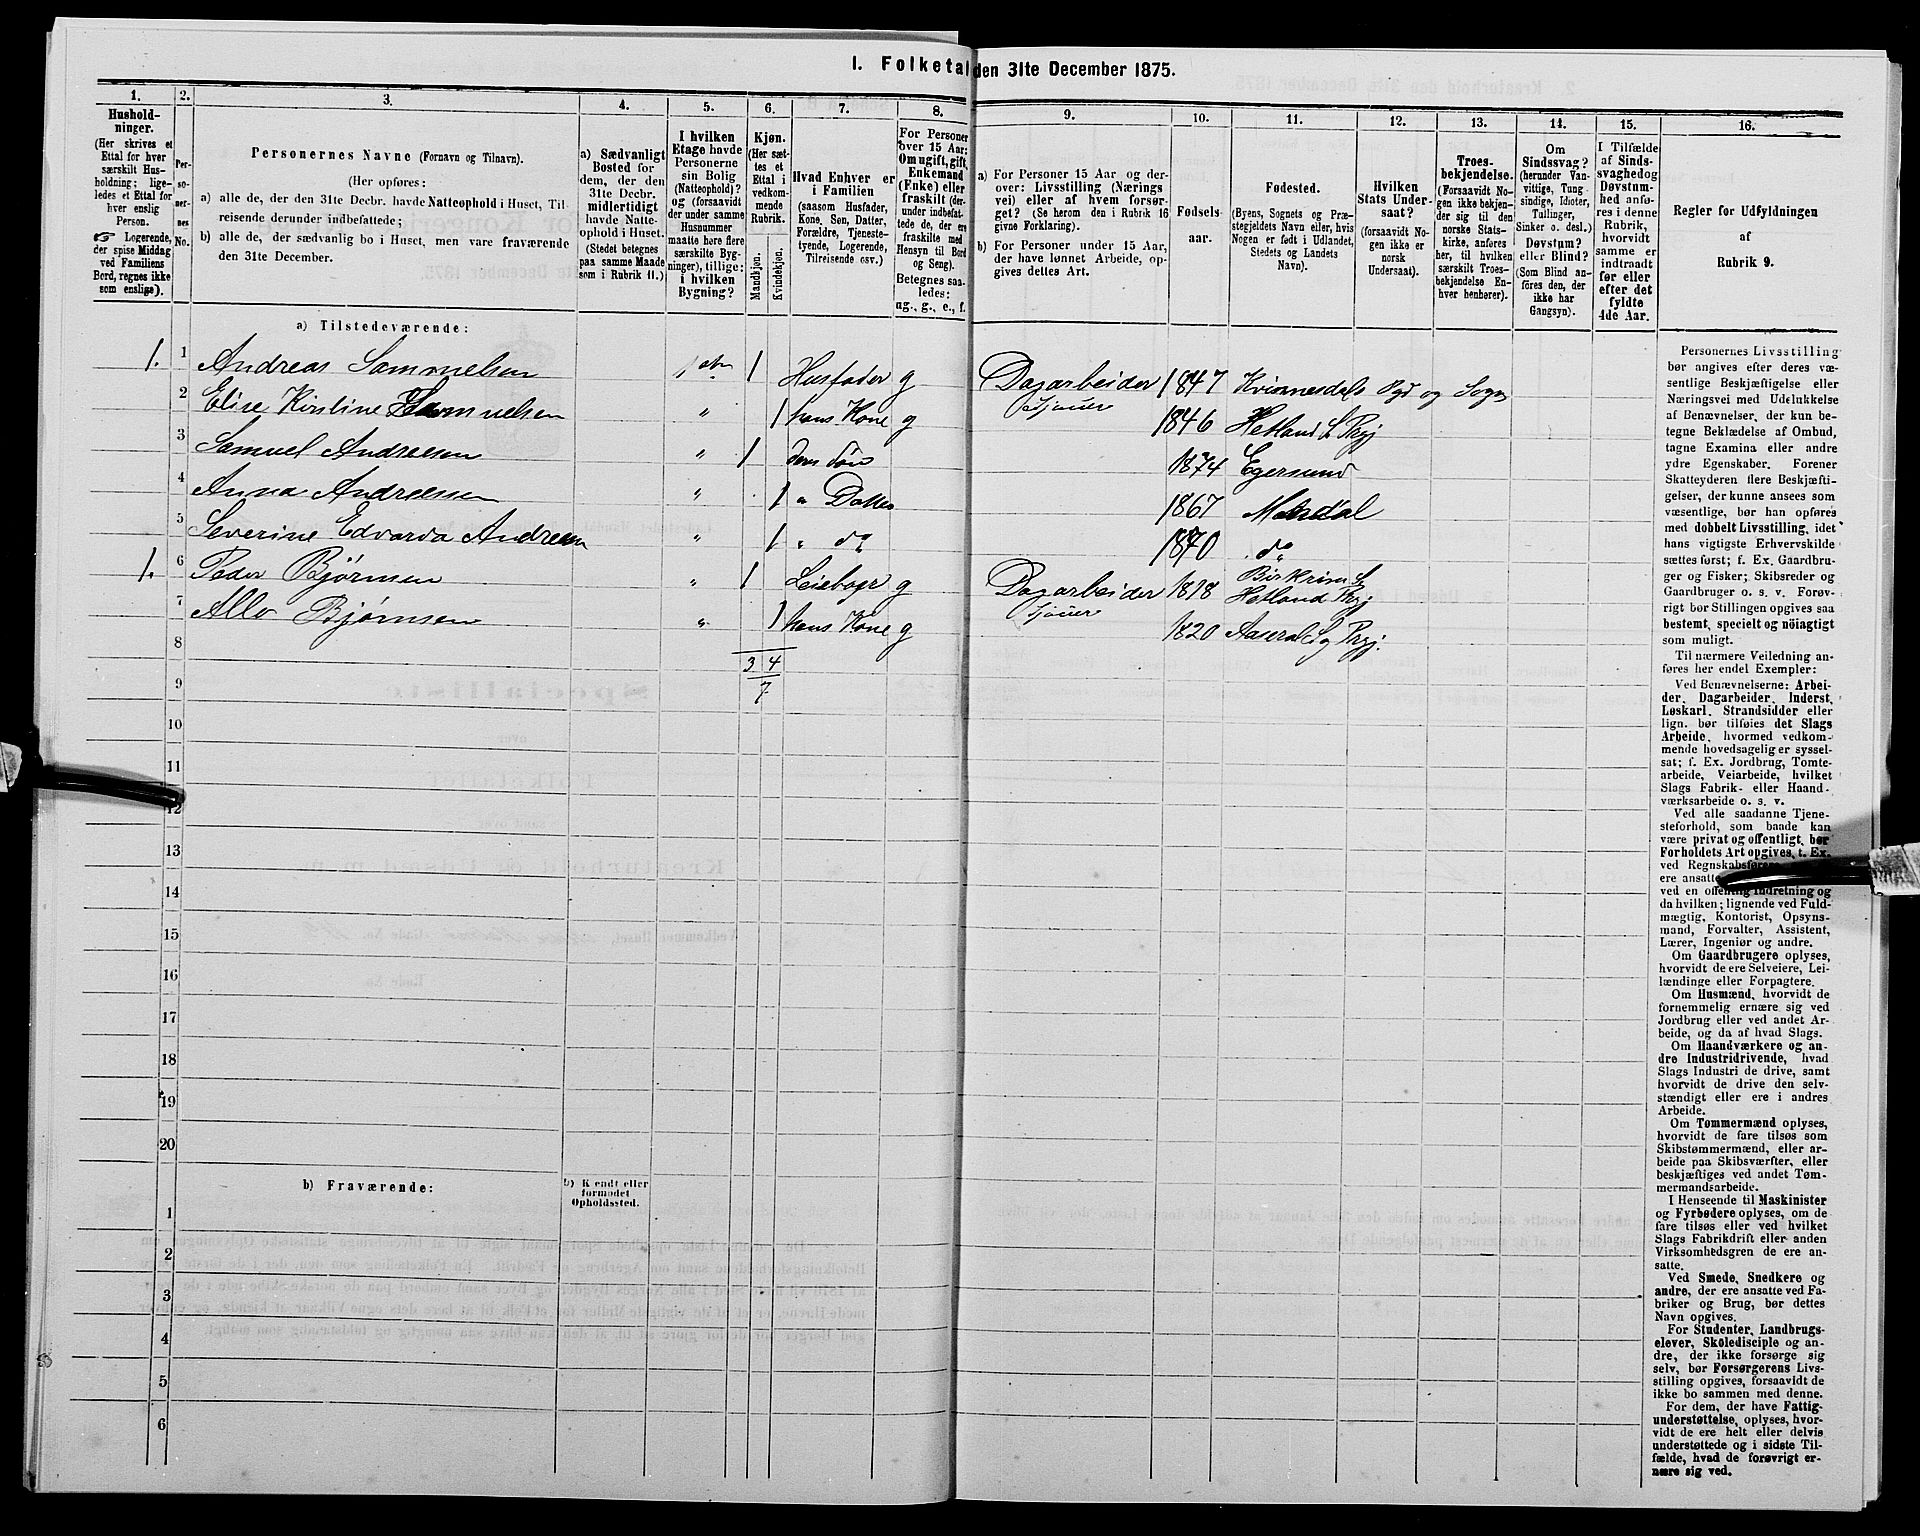 1. Folketal den 31te December 1875.
1. 2. 3. 4. 5. 6. 7. 8. 9. 10. 11. 12. 13. 14. 15. 16.
Hushold-
ninger.
(Her skrives et
Ettal for hver
særskilt Hus-
holdning; lige-
ledes et Ettal for
hver enslig
Person.
☞ Logerende,
der spise Middag
ved Familiens
Bord, regnes ikke
som enslige).
Per-
so-
ner-
nes
No.
Personernes Navne (Fornavn og Tilnavn).
(Her opføres:
a) alle de, der den 31te Decbr. havde Natteophold i Huset, Til-
reisende derunder indbefattede;
b) alle de, der sædvanlig bo i Huset, men vare fraværende
den 31te December.
a) Sædvanligt
Bosted for
dem, der den
31te Decbr.
midlertidigt
havde Natte-
ophold i Huset.
(Stedet betegnes
paa samme Maade
som i Rubrik 11.)
I hvilken
Etage havde
Personerne
sin Bolig
(Natteophold)?
og (forsaavidt
der under samme
Husnummer
maatte høre flere
særskilte Byg-
ninger), tillige:
i hvilken
Bygning?
Kjøn.
(Her sæt-
tes et
Ettal i
vedkom-
mende
Rubrik.
Mandkjøn.
Kvindekjøn.
Hvad Enhver er
i Familien
(saasom Husfader,
Kone, Søn, Datter,
Forældre, Tjeneste-
tyende, Logerende,
Tilreisende osv.)
For Personer
over 15 Aar:
Om ugift, gift,
Enkemand
(Enke) eller
fraskilt (der-
under indbefat-
tede de, der ere
fraskilte med
Hensyn til Bord
og Seng).
Betegnes saa-
ledes:
ug., g., e., f.
a) For Personer 15 Aar og der-
over: Livsstilling (Nærings
vei) eller af hvem forsør-
get? (Se herom den i Rubrik 16
givne Forklaring).
b) For Personer under 15 Aar,
der have lønnet Arbeide, op-
gives dettes Art.
Fødsels-
aar.
Fødested.
(Byens, Sognets og Præ-
stegjeldets Navn eller, hvis
Nogen er født i Udlandet,
Stedets og Landets
Navn).
Hvilken
Stats Under-
saat?
(forsaavidt No-
gen ikke er
norsk
Undersaat).
Troes-
bekjendelse.
(Forsaavidt No-
gen ikke bekjen-
der sig til den
norske Stats-
kirke, anføres
her, til hvilken
særskilt Troes-
bekjendelse En-
hver henhører).
Om
Sindssvag?
(herunder Van-
vittige, Tung
sindige, Idioter,
Tullinger,
Sinker o. desl.)
Døvstum?
eller Blind?
(Som Blind an-
føres den, der
ikke har
Gangsyn).
I Tilfælde
af Sinds-
svaghed og
Døvstum-
hed anfø-
res i denne
Rubrik,
hvorvidt
samme er
indtraadt
før eller
efter det
fyldte
4de Aar.
Regler for Udfyldningen
af
Rubrik 9.
a) Tilstedeværende:
1. 1 Andreas Sammelsen 1 1 Husfader g Dagarbeider 1847
Sjouer
2 Elise Kirstine Sammelsen „ 1 hans Kone g 1846 Hetland S. Prgj
3 Samuel Andreesen „ 1 deres Søn 1874 Egersund
4 Anna Andreessen „ 1 „ Datter 1867 Mandal
5 Severine Edvarda Andreesen „ 1 „ do 1870 do
1. 6 Peder Bjørnsen „ 1 g Dagarbeider 1818 Birkrim S
Sjouer Hetland Prgj
7 „ 1 hans Kone g 1820 Aaseral S og Prgj.
8 3 4
9 7
10
11
12
13
14
15
16
17
18
19
20
b) Fraværende:
b) Kjendt eller
formodet
Opholdssted.
1
2
3
4
5
6
Personernes Livsstilling
bør angives efter deres væ-
sentlige Beskjæftigelse eller
Næringsvei med Udelukkelse
af Benævnelser, der kun be-
tegne Beklædelse af Ombud,
tagne Examina eller andre
ydre Egenskaber. Forener
Skatteyderen flere Beskjæfti-
gelser, der kunne ansees som
væsentlige, bør han opføres
med dobbelt Livsstilling, idet
hans vigtigste Erhvervskilde
sættes først; f. Ex. Gaardbru-
ger og Fisker; Skibsreder og
Gaardbruger o. s. v. Forøv-
rigt bør Stillingen opgives saa
bestemt, specielt og nöiagtigt
som muligt.
Til nærmere Veiledning an-
føres her endel Exempler:
Ved Benævnelserne: Arbei-
der, Dagarbeider, Inderst,
Løskarl, Strandsidder eller
lign. bør tilføies det Slags
Arbeide, hvormed vedkom-
mende hovedsagelig er syssel-
sat; f. Ex. Jordbrug, Tomte-
arbeide, Veiarbeide, hvilket
Slags Fabrik- eller Haand-
værksarbeide o. s. v.
Ved alle saadanne Tjene-
steforhold, som baade kan
være privat og offentligt, bør
Forholdets Art opgives, t. Ex.
ved Regnskabsføre
ere ansatte
ved en offentlig Indretning og
da hvilken; lignende ved Fuld-
mægtig, Kontorist, Opsyns-
mand, Forvalter, Assistent,
Lærer, Ingeniør og andre.
Om Gaardbrugere oplyses,
hvorvidt de ere Selveiere, Lei-
lændinge eller Forpagtere.
Om Husmænd, hvorvidt de
fornemmelig ernære sig ved
Jordbrug eller ved andet Ar-
beide, og da af hvad Slags.
Om Haandværkere og an-
dre Industridrivende, hvad
Slags Industri de drive, samt
hvorvidt de drive den selv-
stændigt eller ere i andres
Arbeide.
Om Tømmermænd oplyses,
hvorvidt de fare tilsøs som
Skibstømmermænd, eller ar-
beide paa Skibsværfter, eller
beskjæftiges ved andet Tøm-
mermandsarbeide.
I Henseende til Maskinister
og Fyrbødere oplyses, om de
fare tilsøs eller ved hvilket
Slags Fabrikdrift eller anden
Virksomhedsgren de ere an-
satte.
Ved Smede, Snedkere og
andre, der ere ansatte ved Fa-
briker og Brug, bør dettes
Navn opgives.
For Studenter, Landbrugs-
elever, Skoledisciple og an-
dre, der ikke forsørge sig
selv, bør Forsørgerens Livs-
stilling opgives, forsaavidt de
ikke bo sammen med denne.
For dem, der have Fattig-
understøttelse, oplyses, hvor-
vidt de ere helt eller delvis
understøttede og i sidste Til-
fælde, hvad de forøvrigt er-
nære sig ved.